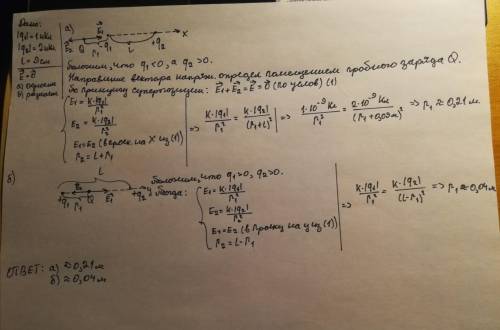 Дано:
|q₁| = 1 нКл
|q₂| = 2 нКл
L = 9 см
E⃗ = 0⃗
а) однаков
б) разноим
а)
E⃗₂ Q E⃗₁ -q₁ +q₂ X
r₁ L
Положим, что q₁<0, а q₂>0.
Направление вектора напряж. определ помещением пробного заряда Q.
По принципу суперпозиции: E⃗₁+E⃗₂=E⃗=0⃗ (по услов) (1)
E₁ = K·|q₁|/r₁²
E₂ = K·|q₂|/r₂²
E₁=E₂ (в проек. на X из (1))
r₂ = L+r₁
=> K·|q₁|/r₁² = K·|q₂|/(r₁+L)² => 1·10⁻⁹ Кл/r₁² = 2·10⁻⁹ Кл/(r₁+0,09м)² => r₁ ≈ 0,21 м.
б)
L
+q₁ E₂ Q E₁ +q₂ y
r₁
Положим, что q₁>0, q₂>0.
Тогда:
E₁ = K·|q₁|/r₁²
E₂ = K·|q₂|/r₂²
E₁=E₂ (в проек на y из (1))
r₂ = L-r₁
=> K·|q₁|/r₁² = K·|q₂|/(L-r₁)² => r₁ ≈ 0,04 м
ОТВЕТ: а) ≈ 0,21 м
б) ≈ 0,04 м